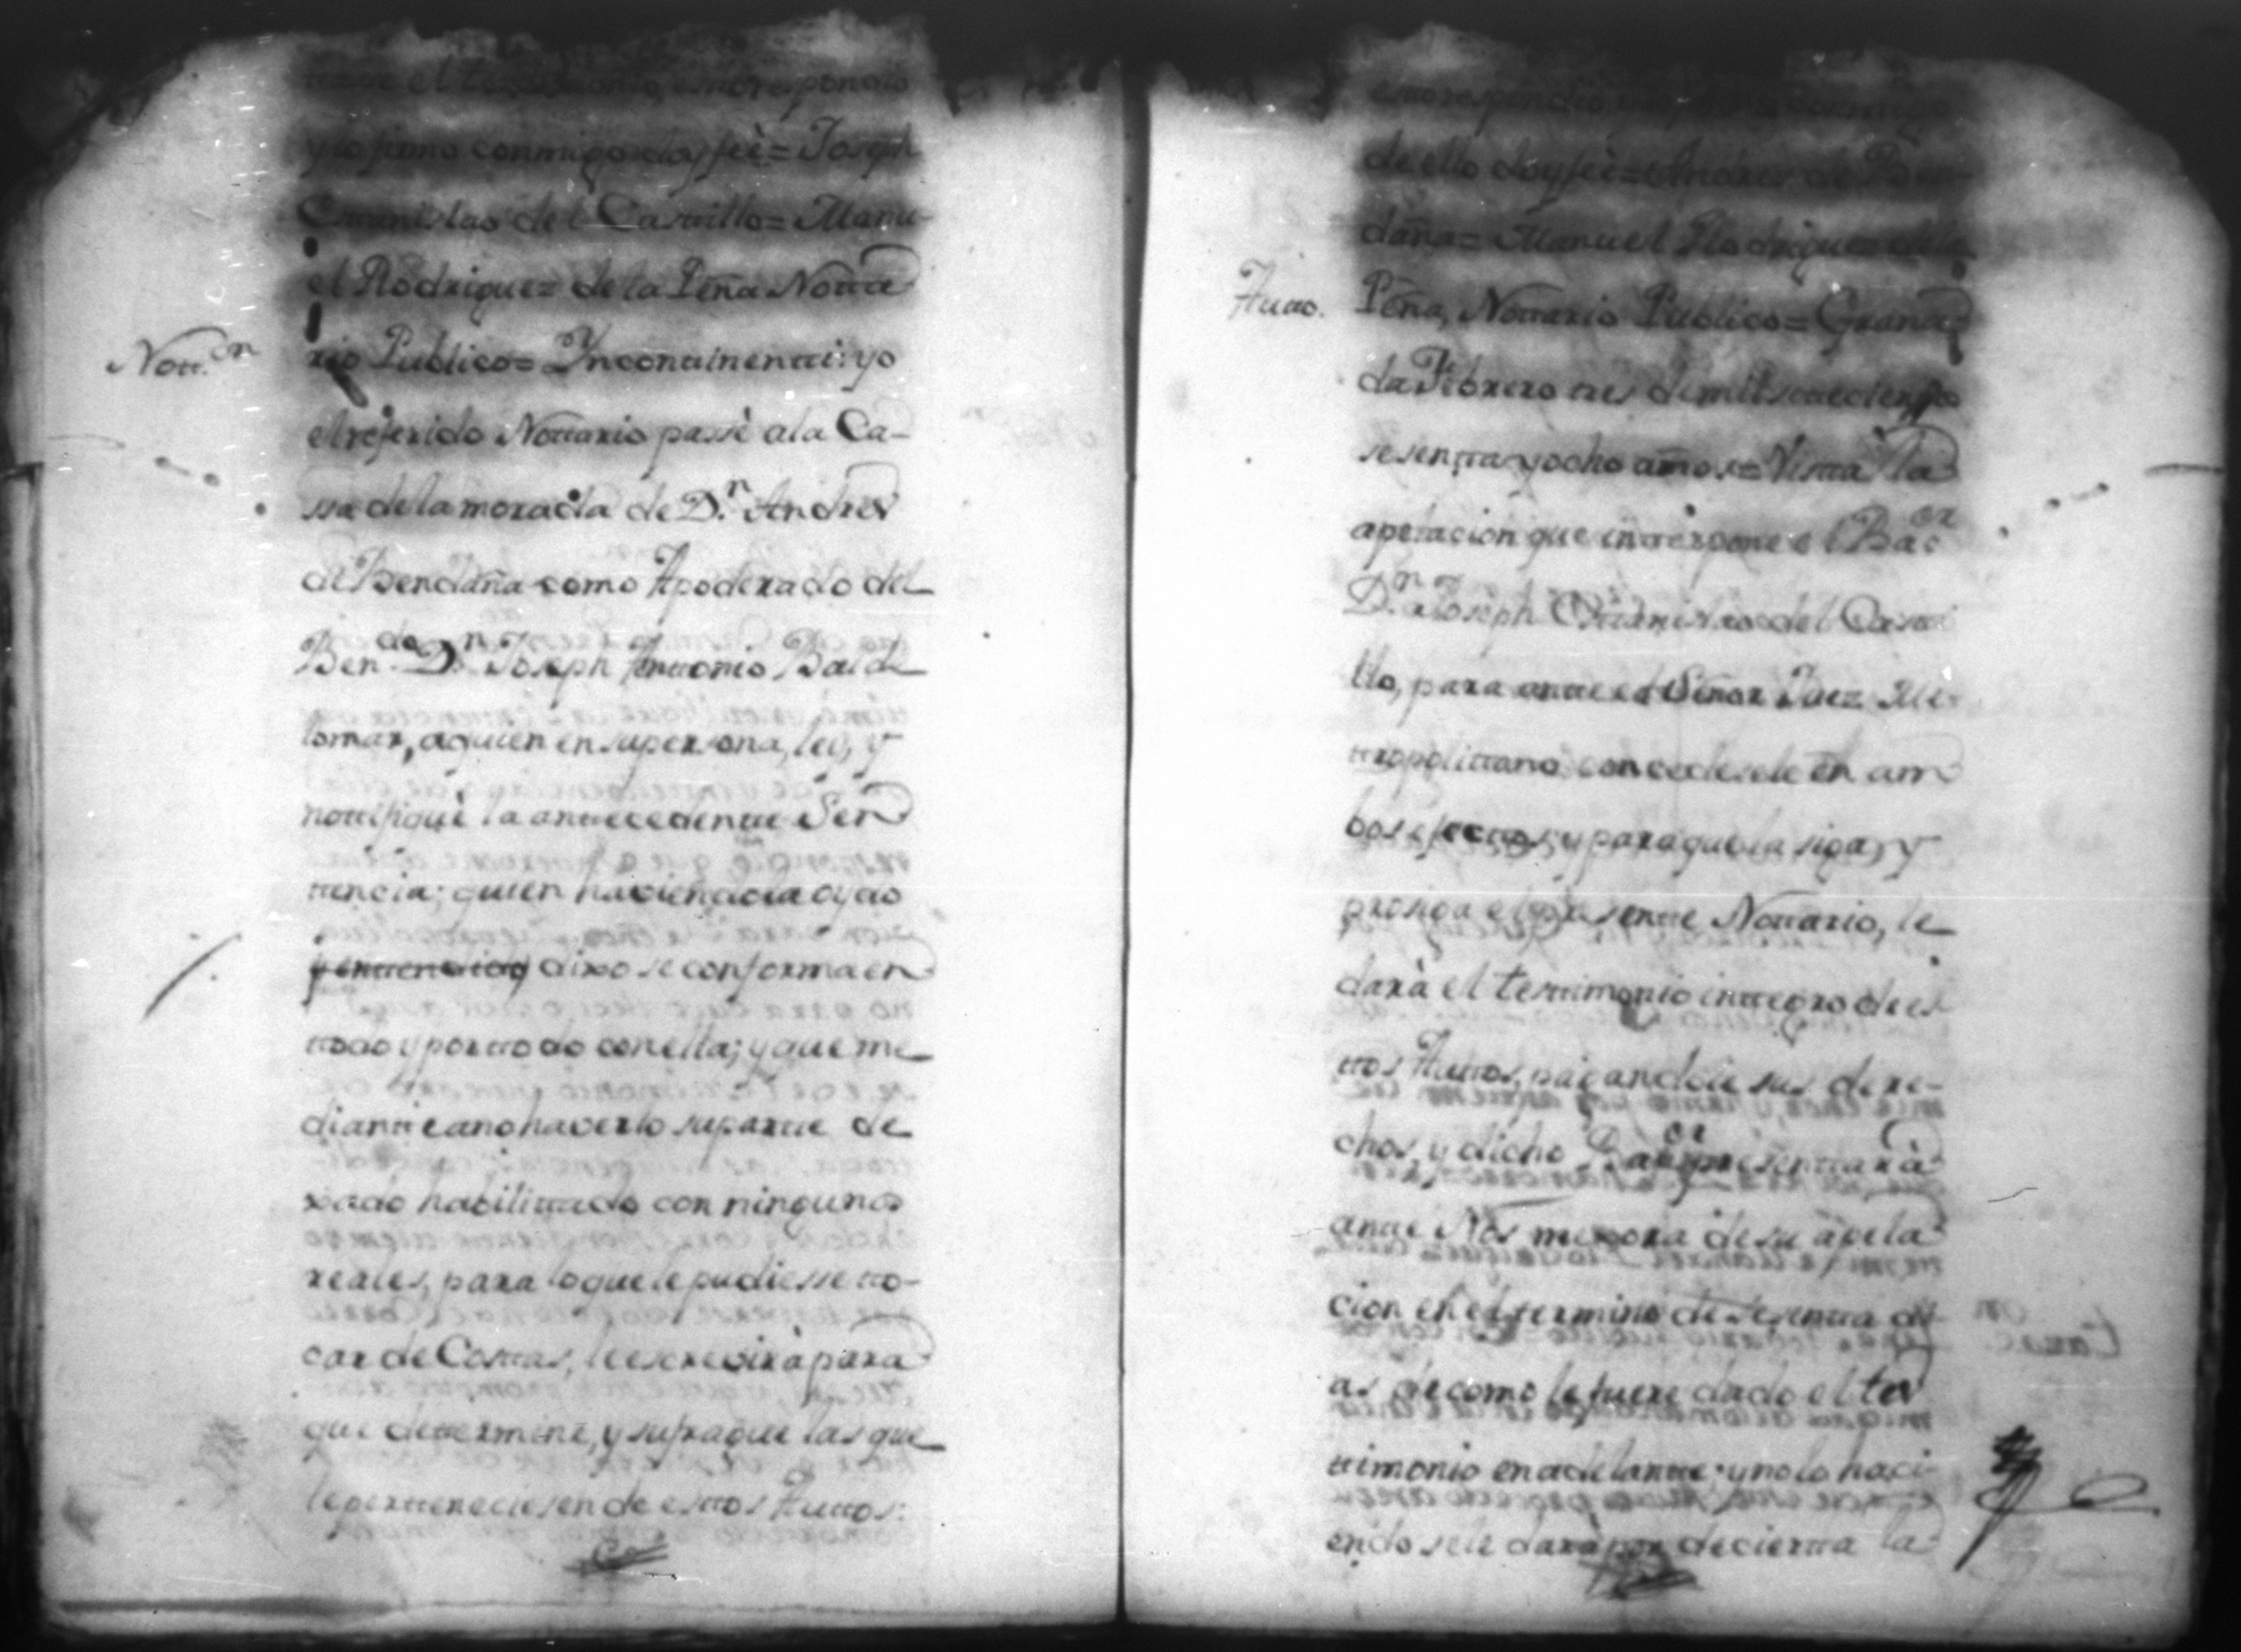 el testimonio, esto respondio
y lo firmo conmigo doy feè = Joseph
Estanislao del Castillo = Manu-
el Rodriguez de la Peña Notta
Nott.on
rio Publico = Yncontinentti: yo
el referido Nottario passè a la Ca-
ssa de la morada de D.n Andres
de Bendaña como Apoderado del
Ben.do D.n Joseph Anttonio Bald
lomar, a quien en su persona, lei, y
nottifiquè la anttecedentte Sen
ttencia; quien haviendola oydo
y enttendido dixo se conforma en
ttodo y por ttodo con ella; y que me
diantte a no haverlo su partte de
xado habilittado con ningunos
reales, para lo que le pudiesse tto-
car de Costtas, le escrevirà para
que dettermine, y sufrague las que
le pertteneciesen de esttos Auttos:
esto respondio
de ello doy feè = Andres de Ben-
daña = Manuel Rodriguez de la
Autto.
Peña, Nottario Publico = Grana
da Febrero tres de mil settecientos
sesentta y ocho años = Vistta la
apelacion que intterpone el Bac.or
D.n Joseph Esttanislao del Castti
llo, para antte el Señor Juez Me
ttropolittano, concedesele en am
bos efecttos, y para que la siga, y
prosiga el presentte Nottario, le
darà el testtimonio inttegro de es
ttos Auttos, pagandole sus dere-
chos, y dicho Bac.or presenttarà
antte Nos mexora de su apela
cion en el termino de sesentta di
as de como le fuere dado el tes
ttimonio en adelantte: y no lo haci-
endo se le darà por decierta la